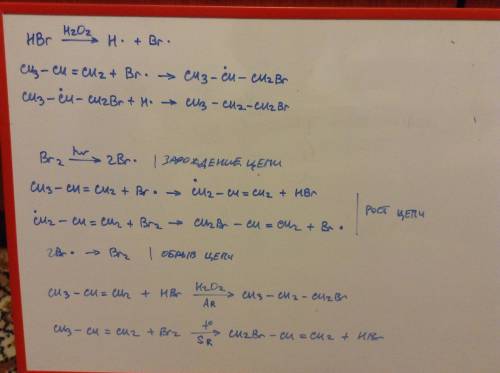 HBr —H2O2→ H· + Br·
CH3–CH=CH2 + Br· → CH3–ĊH–CH2Br
CH3–ĊH–CH2Br + H· → CH3–CH2–CH2Br
Br2 —hν→ 2Br· | ЗАРОЖДЕНИЕ ЦЕПИ
CH3–CH=CH2 + Br· → ĊH2–CH=CH2 + HBr
ĊH2–CH=CH2 + Br2 → CH2Br–CH=CH2 + Br· | РОСТ ЦЕПИ
2Br· → Br2 | ОБРЫВ ЦЕПИ
CH3–CH=CH2 + HBr —H2O2/AR→ CH3–CH2–CH2Br
CH3–CH=CH2 + Br2 —t°/SR→ CH2Br–CH=CH2 + HBr